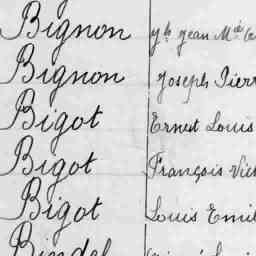 Bignon Jean
Bignon Joseph Pierr
Bigot Ernest Louis
Bigot François Vict
Bigot Louis Emil